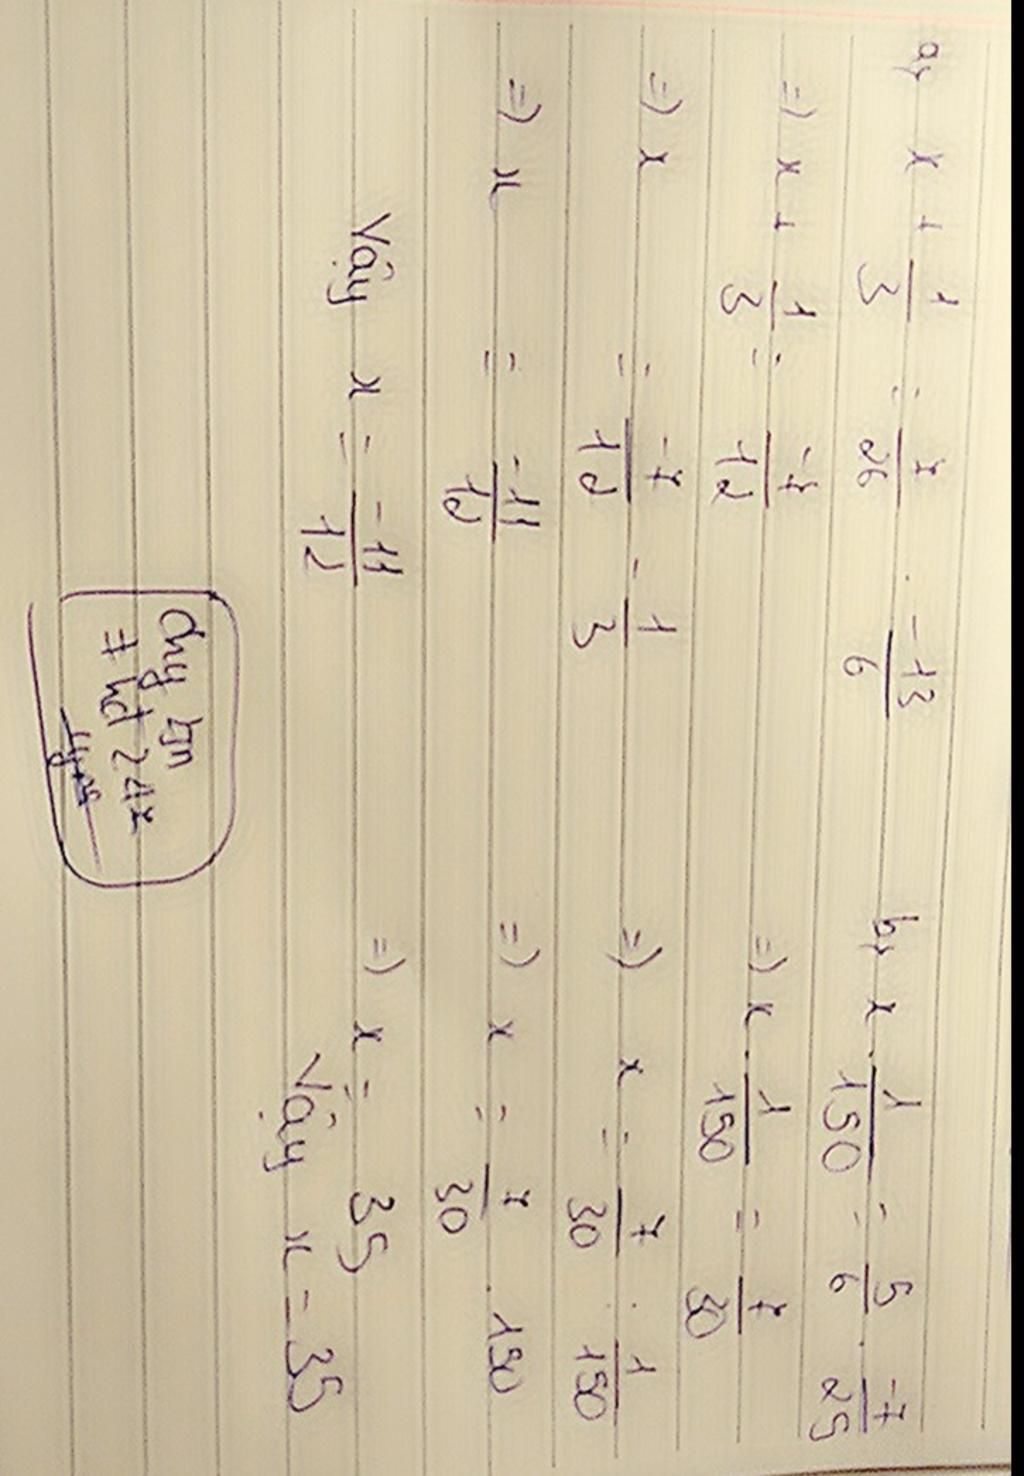 a, x + 1/3 = 7/26 . -13/6
=) x + 1/3 = -7/12
=) x = -7/12 - 1/3
=) x = -11/12
Vậy x = -11/12
b, x . 1/150 = 5/6 . -7/25
=) x . 1/150 = 7/30
=) x = 7/30 : 1/150
=) x = 7/30 . 150
=) x = 35
Vậy x = 35
# hd 247